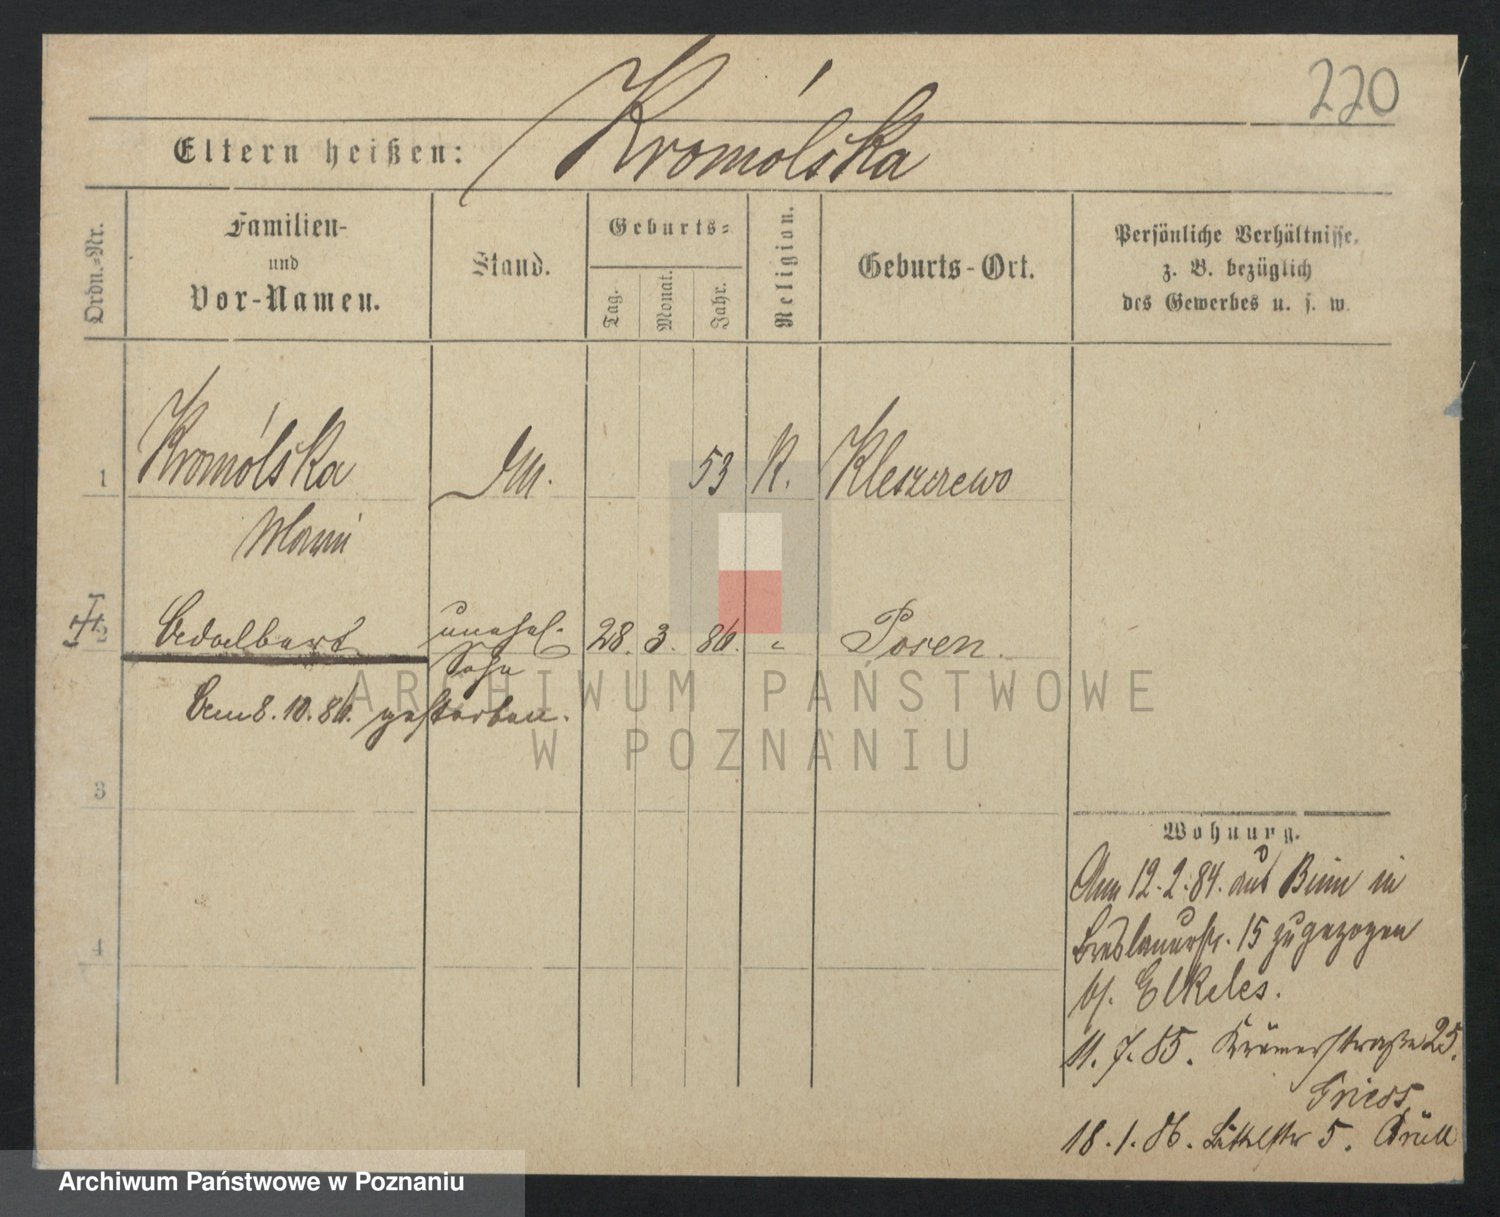 220
Kromólska
Eltern heißen:
Ordn.-Nr.
Familien-
und
Vor-Namen.
Stand.
Geburts-
Tag.
Monat.
Jahr.
Religion.
Geburts-Ort.
Persönliche Verhältnisse,
z. B. bezüglich
des Gewerbes u. s. w.
1 Kromólska M. 53 K. Kleszczewo
2 Adalbert unehel. 28. 3. 86. " Posen.
Sohn
Am 8.10.86. gestorben.
3
4
Wohnung.
Am 12.2.84. aus Bnin in
Breslauerstr. 15 zugezogen
bj. Elkeles.
11.7.85. Krämerstraße 25.
18.1.86. 5.
ARCHIWUM PAŃSTWOWE
W POZNANIU
Archiwum Państwowe w Poznaniu